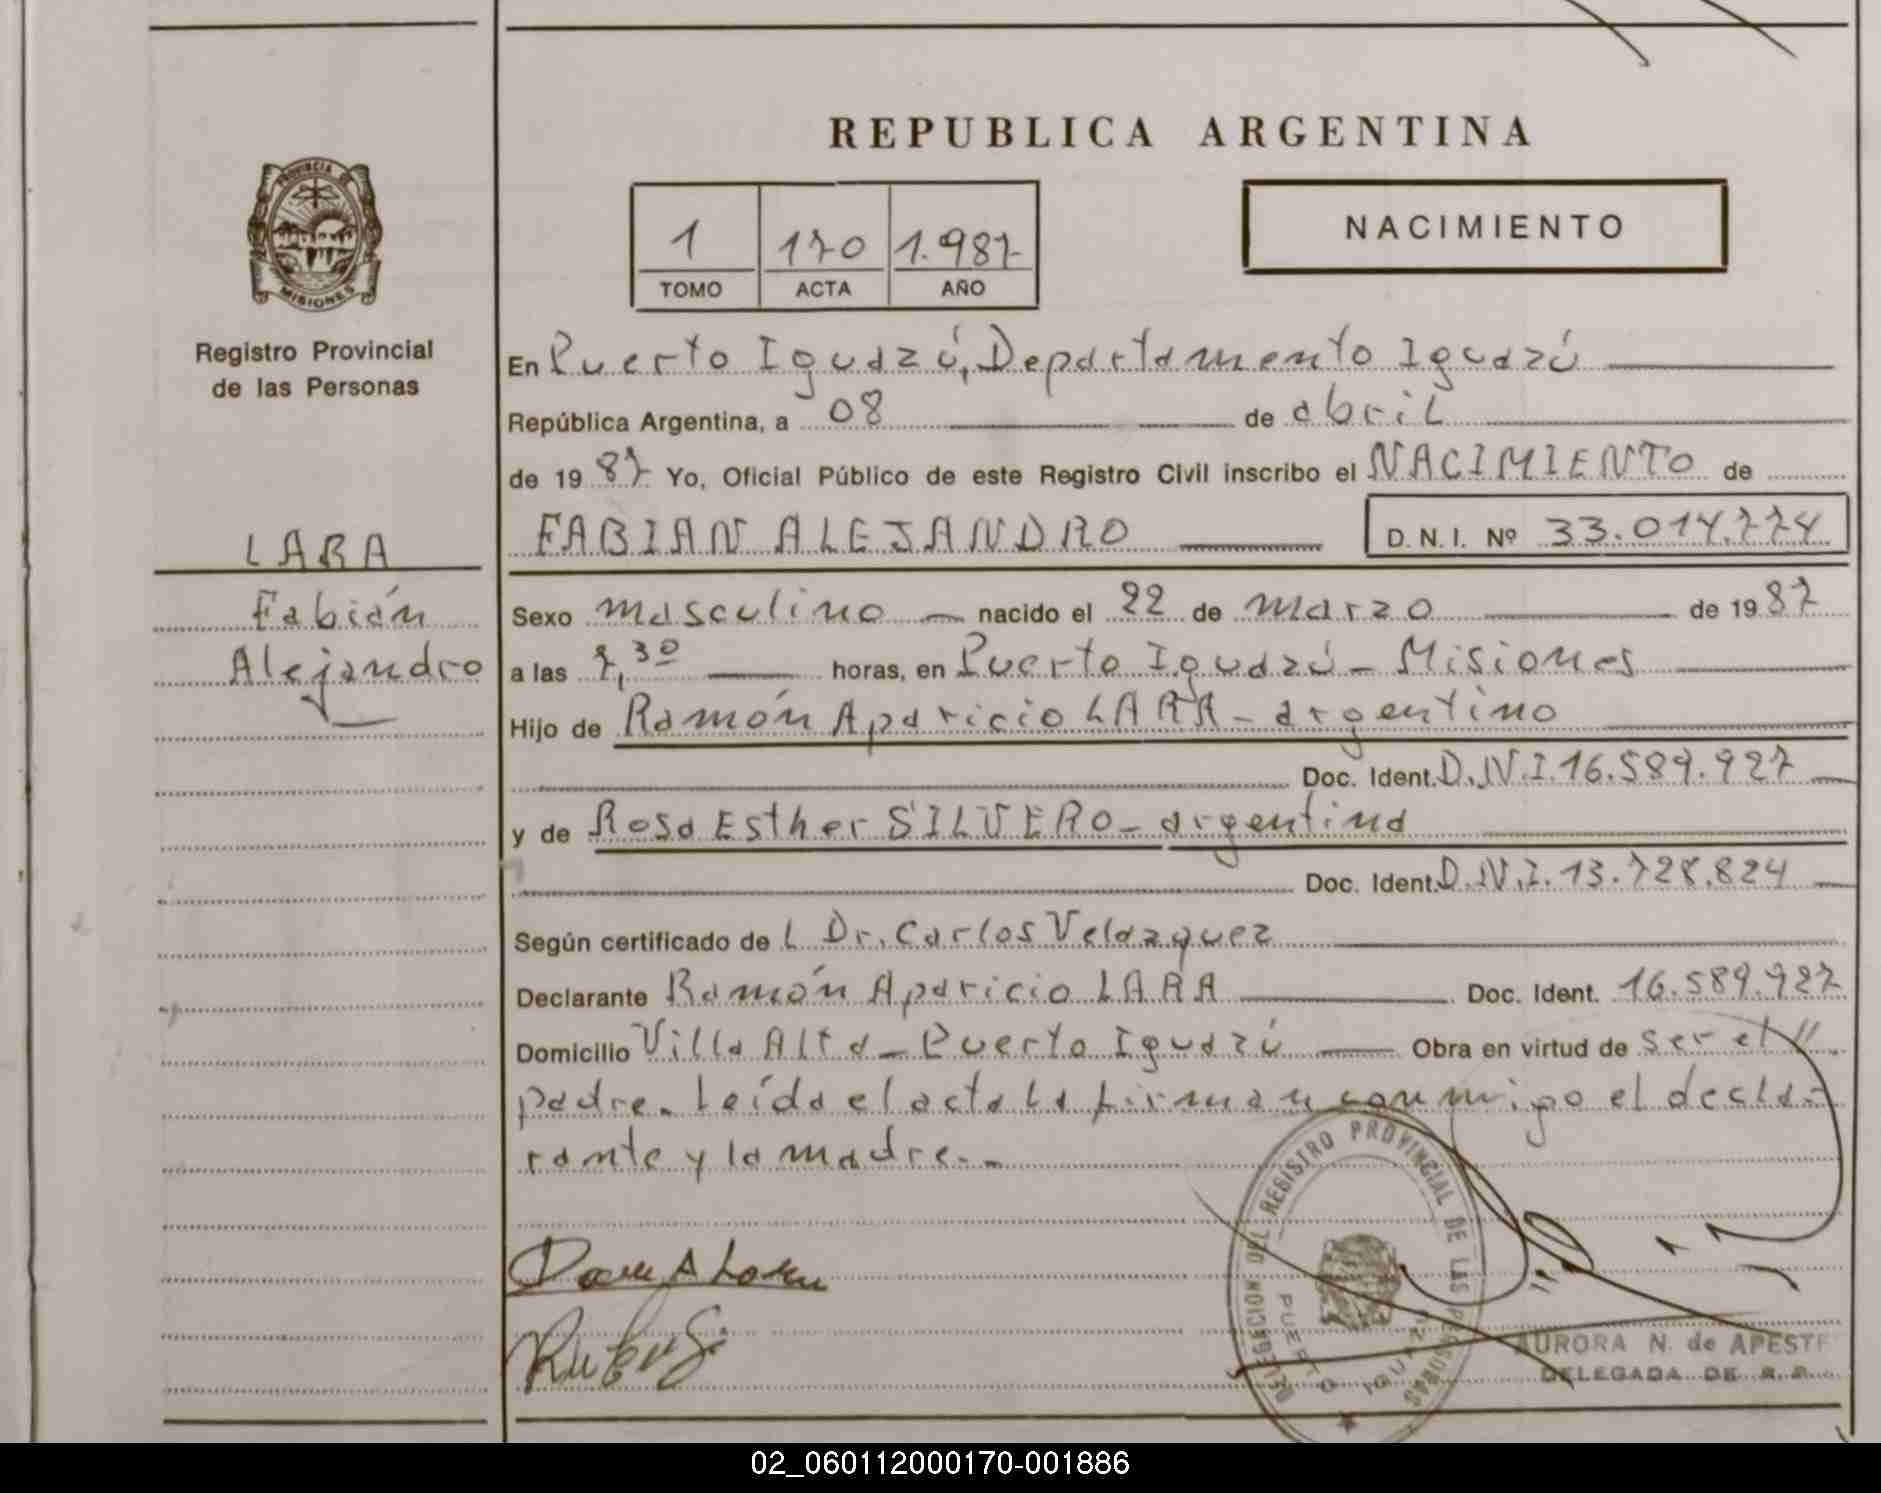 REPUBLICA ARGENTINA
PROVINCIA DE
MISIONES
Registro Provincial
de las Personas
1 170 1.987
TOMO ACTA AÑO
NACIMIENTO
En Puerto Iguazú, Departamento Iguazú
República Argentina, a 08 de abril
de 19 87 Yo, Oficial Público de este Registro Civil inscribo el NACIMIENTO de
LARA
Fabián
Alejandro
FABIAN ALEJANDRO D. N. I. Nº 33.014.774
Sexo masculino nacido el 22 de marzo de 19 87
a las 7,30 horas, en Puerto Iguazú - Misiones
Hijo de Ramón Aparicio LARA - argentino
Doc. Ident. D.N.I. 16.589.927
y de Rosa Esther SILVERO - argentina
Doc. Ident. D.N.I. 13.728.824
Según certificado de L Dr. Carlos Velazquez
Declarante Ramón Aparicio LARA Doc. Ident. 16.589.927
Domicilio Villa Alta - Puerto Iguazú Obra en virtud de ser el
padre. Leída el acta la firman conmigo el decla-
rante y la madre.-
DELEGACION DEL REGISTRO PROVINCIAL DE LAS PERSONAS
PUERTO IGUAZU
AURORA N. de
DELEGADA DE R. P.
02_060112000170-001886